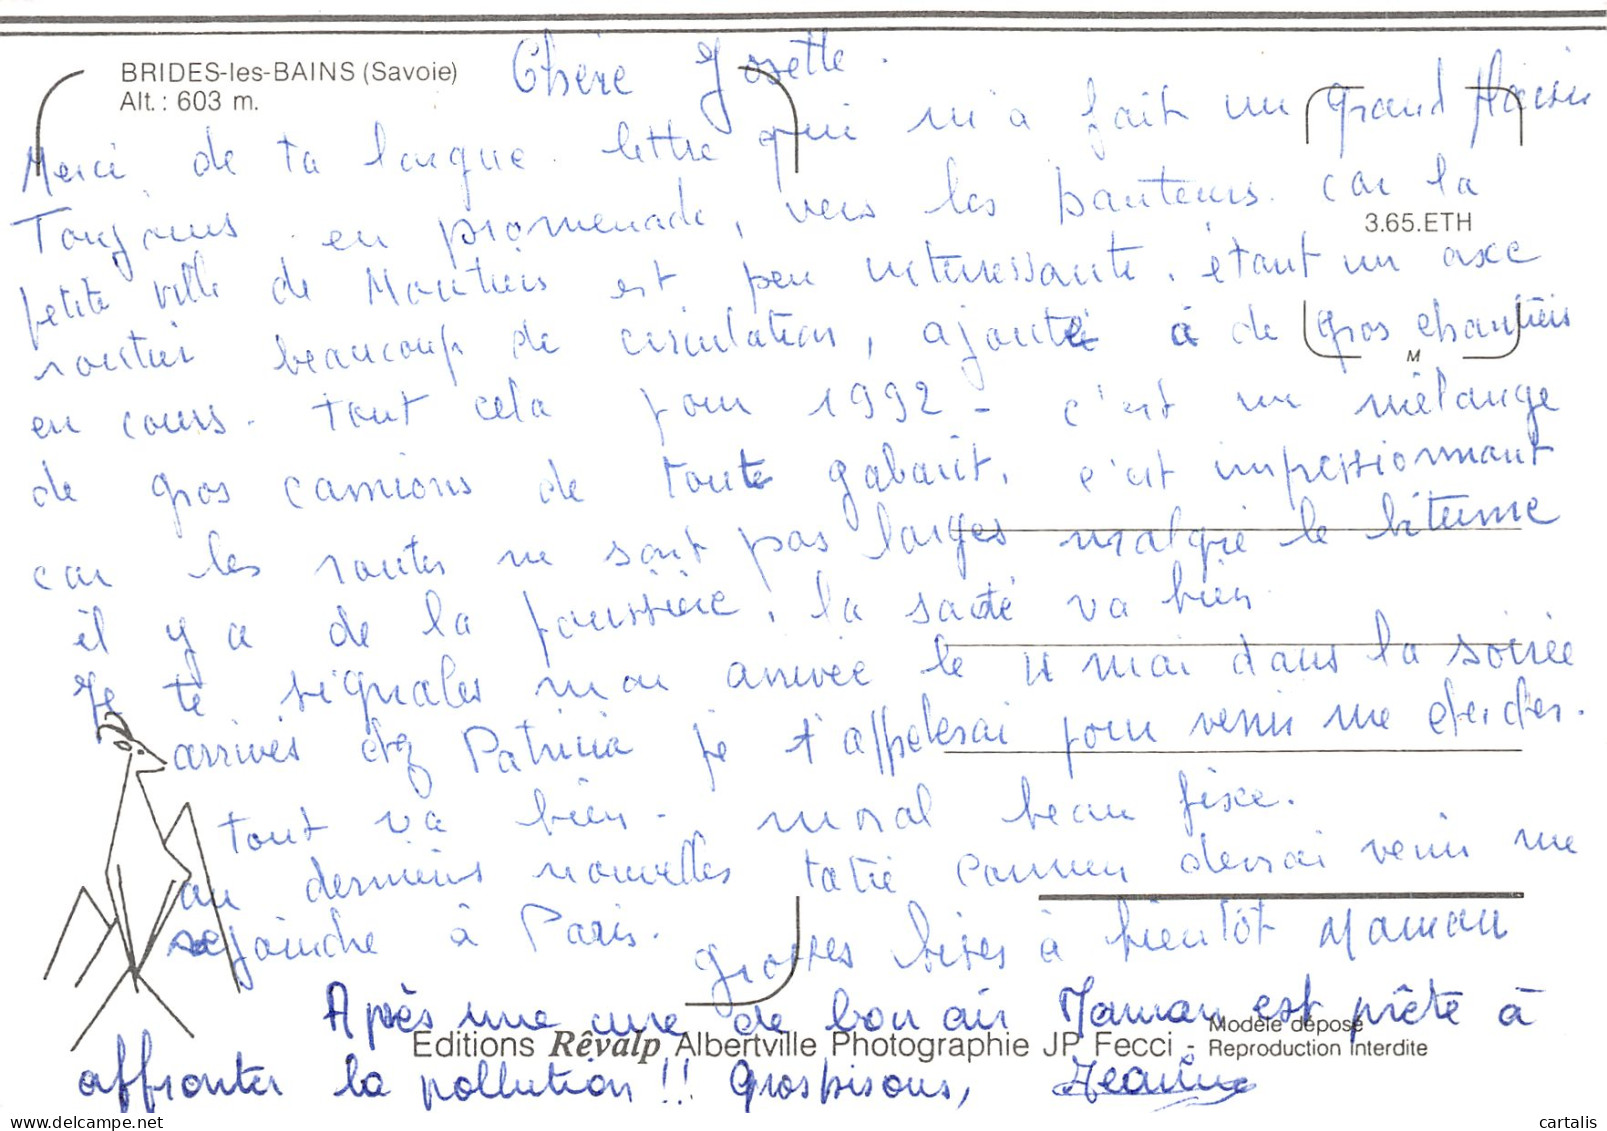 BRIDES-les-BAINS (Savoie)
Alt. : 603 m.
Chère Josette.
Merci de ta longue lettre qui m'a fait un grand plaisir
Toujours en promenade, vers les hauteurs. car la
3.65.ETH
petite ville de Moutiers est peu interessante. étant un axe
routier beaucoup de circulation, ajouté à de gros chantiers
M
en cours. tout cela pour 1992 - c'est un mélange
de gros camions de toute gabarit, c'est impressionnant
car les routes ne sont pas larges malgré le bitume
il y a de la poussière, la santé va bien
Je te signales mon arrivée le 11 mai dans la soirée
arrivés chez Patricia je t'appelerai pour venir me chercher.
tout va bien. moral beau fixe.
au dernières nouvelles tatie Carmen devrai venir me
rejoindre à Paris.
grosses bises à bientôt Maman
Après une cure de bon air Maman est prête à
Editions Rêvalp Albertville Photographie JP Fecci - Modèle déposé
Reproduction interdite
affronter la pollution !! Gros bisous, Jeanine
cartalis